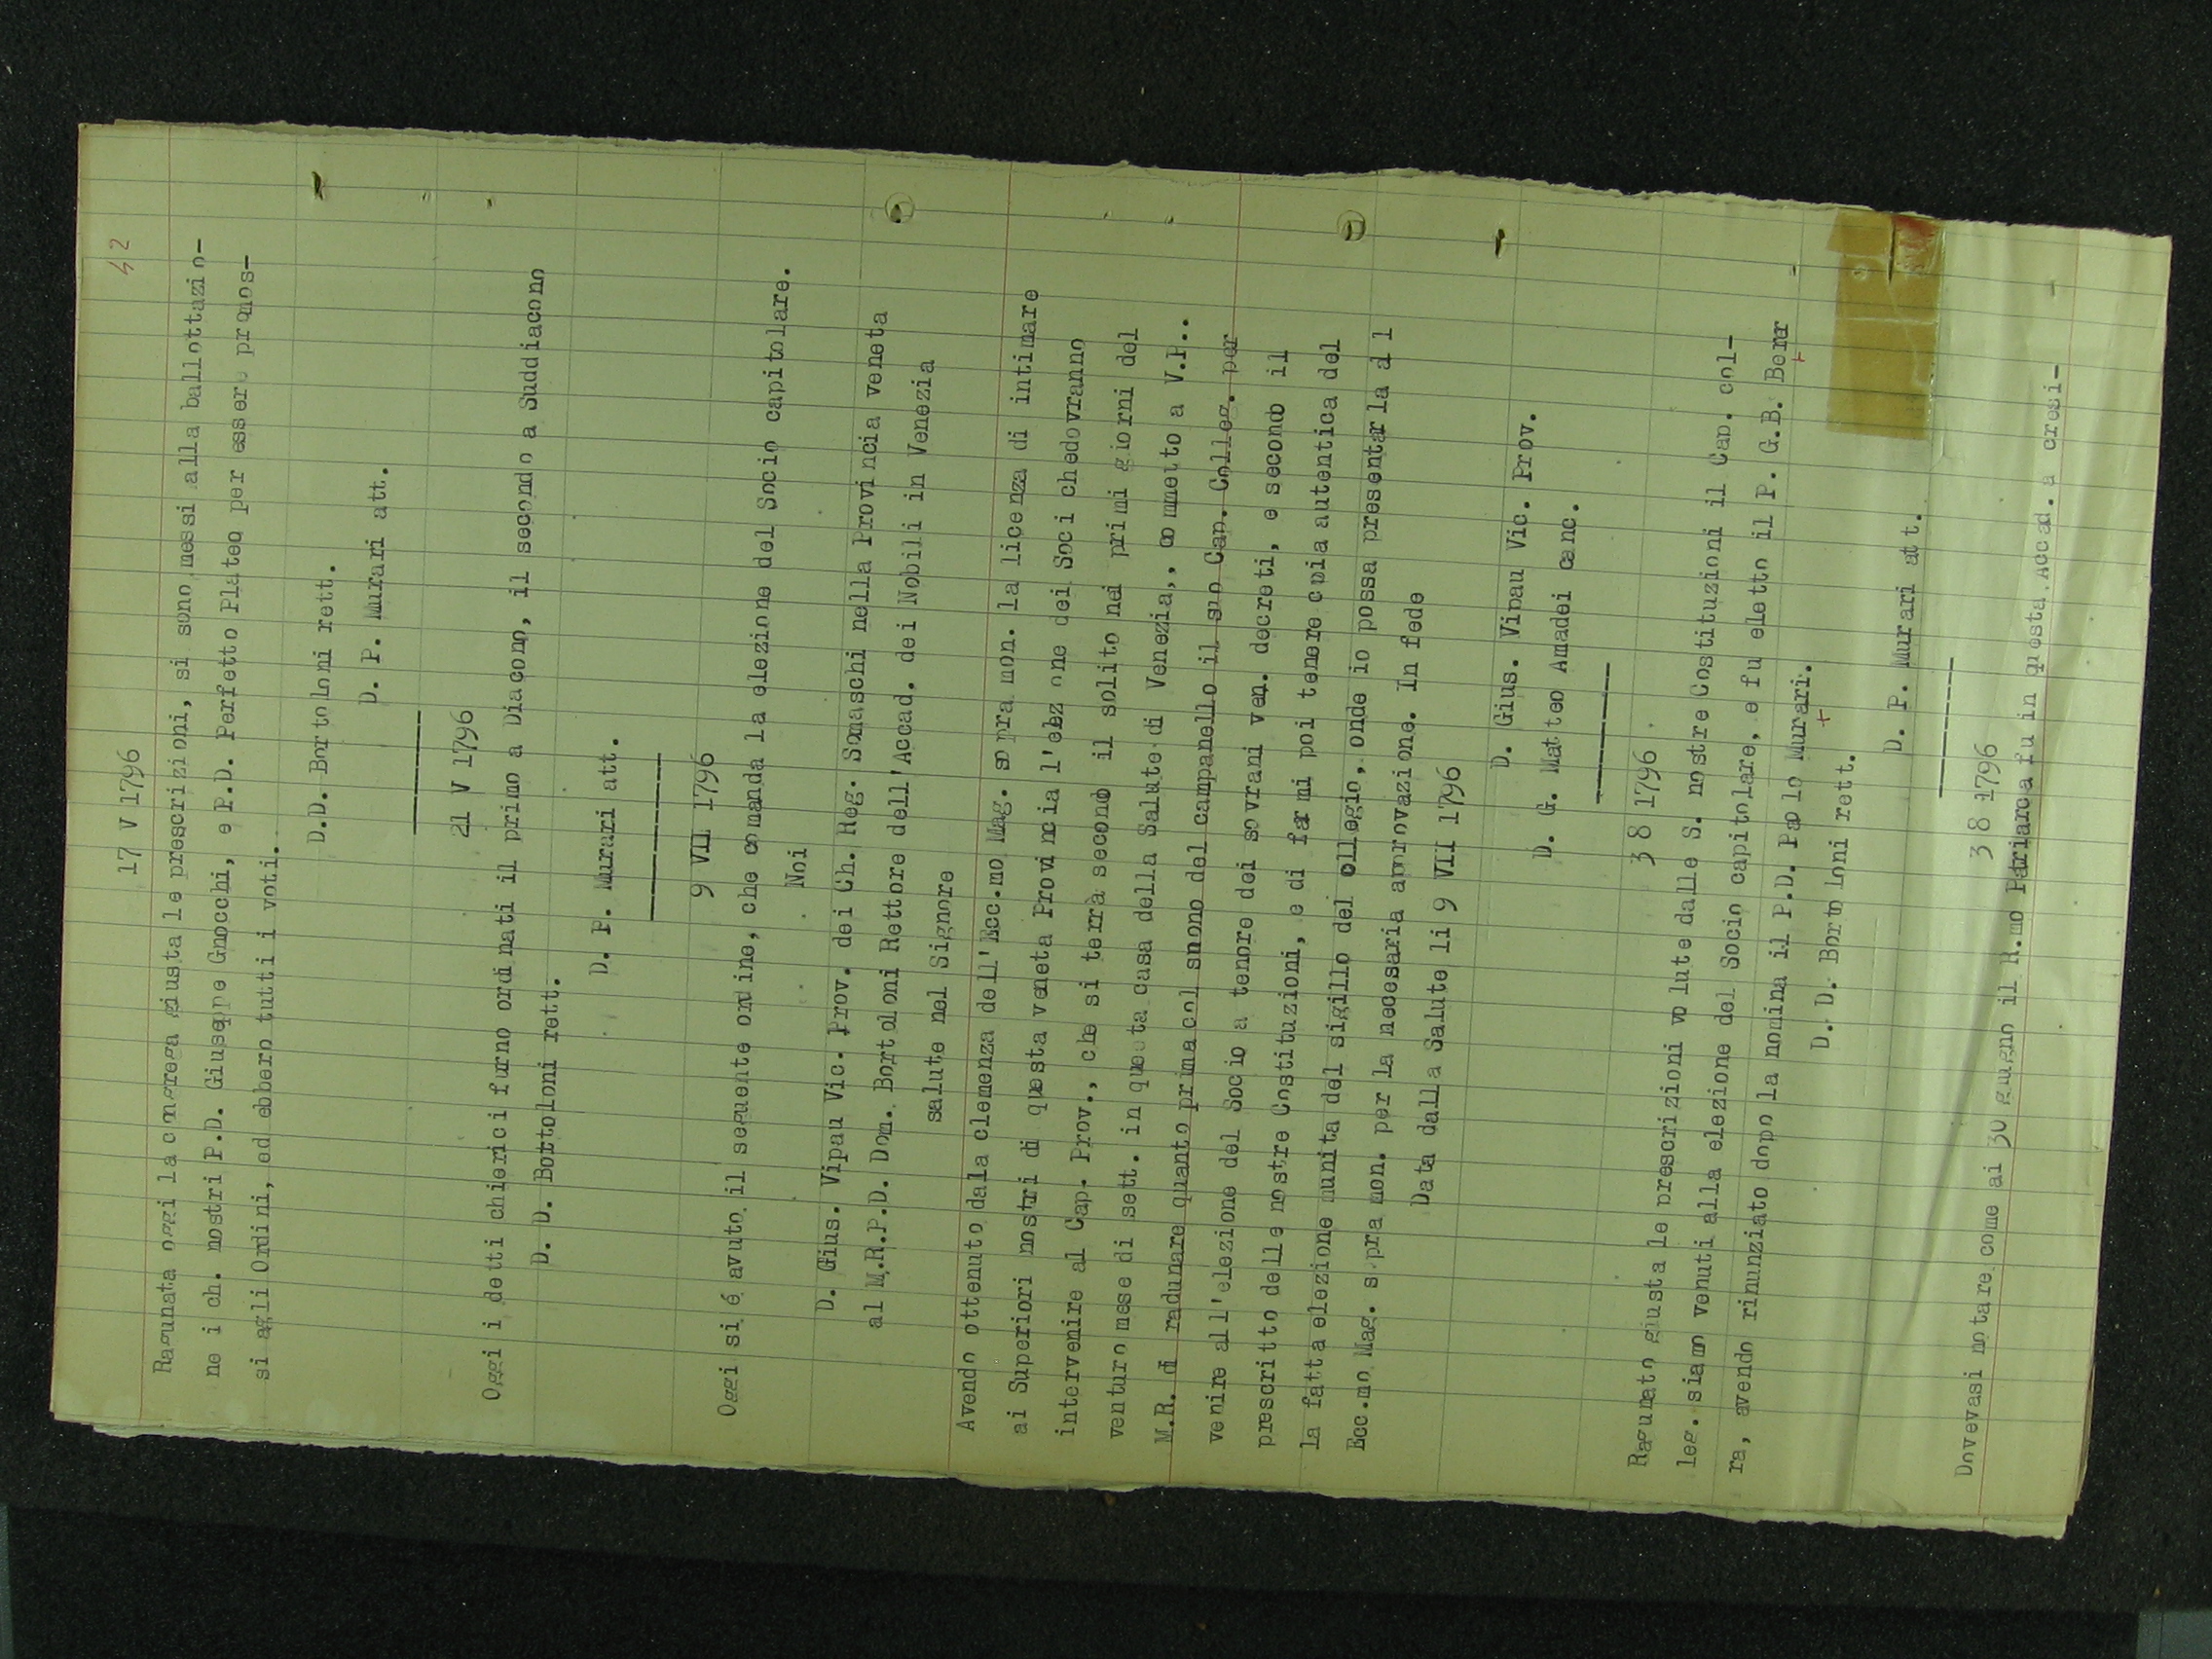 42
17 V 1796
Ragunata oggi la congrega giusta le prescrizioni, si sono messi alla ballottazio-
ne i ch. nostri P.D. Giuseppe Gnocchi, e P.D. Perfetto Plateo per essere promos-
si agli Ordini, ed ebbero tutti i voti.
D.D. Bortoloni rett.
D. P. Murari att.
21 V 1796
Oggi i detti chierici furno ordinati il primo a Diacono, il secondo a Suddiacono
D. D. Bortoloni rett.
D. P. Murari att.
9 VII 1796
Oggi si é avuto il seguente ordine, che comanda la elezione del Socio capitolare.
Noi
D. Gius. Vipau Vic. Prov. dei Ch. Reg. Somaschi nella Provincia veneta
al M.R.P.D. Dom. Bortoloni Rettore dell'Accad. dei Nobili in Venezia
salute nel Signore
Avendo ottenuto dala clemenza dell'Ecc.mo Mag. sopra mon. la licenza di intimare
ai Superiori nostri di questa veneta Provincia l'elez one dei Soci chedovranno
intervenire al Cap. Prov., che si terrà secondo il solito nei primi giorni del
venturo mese di sett. in questa casa della Salute di Venezia,, commetto a V.P..
M.R. di radunare quanto prima col suono del campanello il suo Cap. Colleg. per
venire all'elezione del Socio a tenore dei sovrani ven. decreti, e secondo il
prescritto delle nostre Costituzioni, e di farmi poi tenere cpia autentica del
la fatta elezione munita del sigillo del ollegio, onde io possa presentarla al
Ecc.mo Mag. sopra mon. per la necesaria approvazione. In fede
Data dalla Salute li 9 VII 1796
D. Gius. Vipau Vic. Prov.
D. G. Matteo Amadei canc.
3 8 1796
Ragunato giusta le prescrizioni volute dalle S. nostre Costituzioni il Cap. col-
leg. siamo venuti alla elezione del Socio capitolare, e fu eletto il P. G.B. Berer
ra, avendo rinunziato dopo la nomina il P.D. Paolo Murari.
D. D. Bortoloni rett.
D. P. Murari att.
3 8 1796
Dovevasi notare come ai 30 giugno il R.mo Patriarca fu in questa Accad. a cresi-